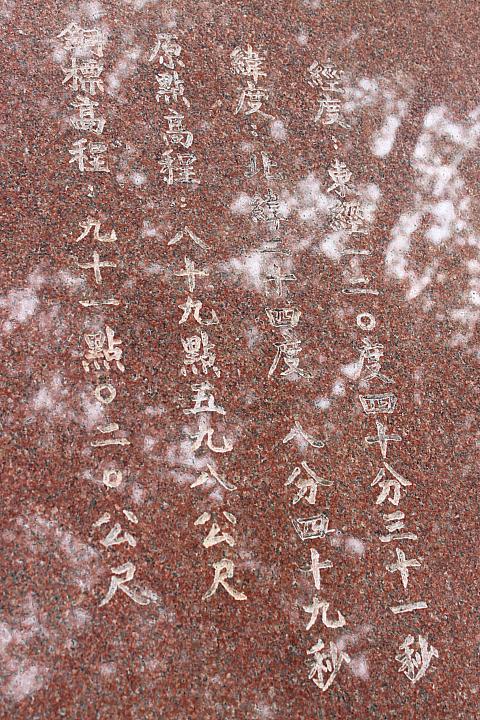 經度：東經一二〇度四十分三十一秒
緯度：北緯二十四度八分四十九秒
原點高程：八十九點五九八公尺
銅標高程：九十一點〇二〇公尺